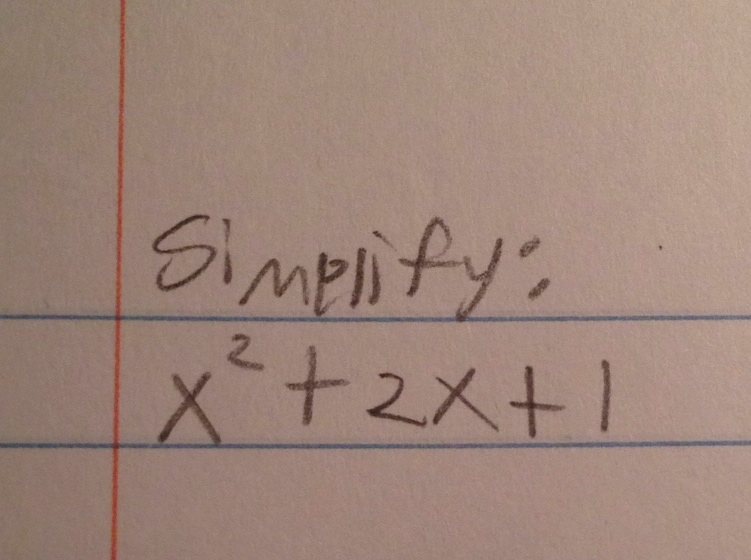 Simplify:
x² + 2x + 1